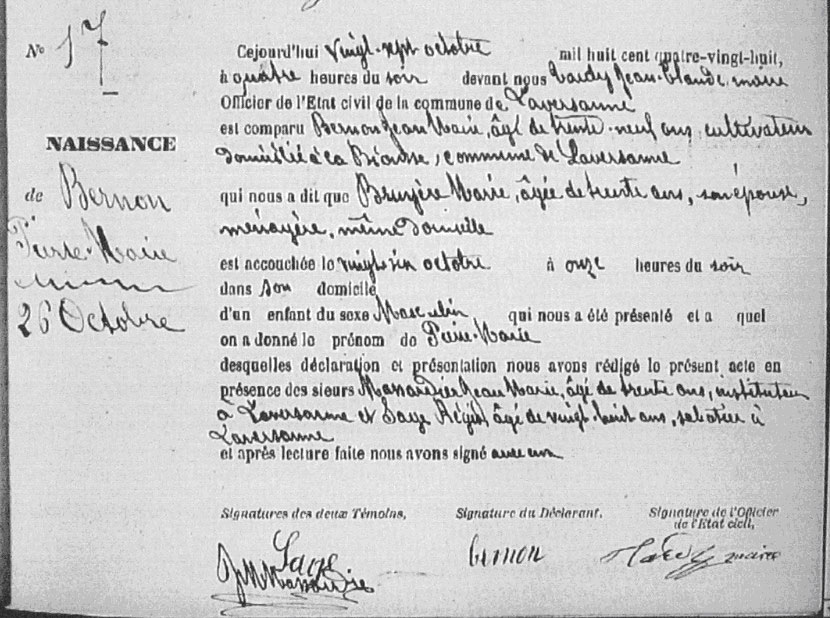 N° 17
NAISSANCE
de Bernon
Pierre-Marie
26 Octobre
Cejourd'hui vingt-sept octobre mil huit cent quatre-vingt-huit,
à quatre heures du soir devant nous Tardy Jean-Claude, maire
Officier de l'Etat civil de la commune de Taversanne
est comparu Bernon Jean Marie, âgé de trente-neuf ans, cultivateur
domicilié à la commune de Laversanne
qui nous a dit que Bruyère Marie, âgée de trente ans, son épouse,
ménagère, même domicile
est accouchée le vingt-six octobre à onze heures du soir
dans son domicile
d'un enfant du sexe Masculin qui nous a été présenté et a quel
on a donné le prénom de Pierre-Marie
desquelles déclaration et présentation nous avons rédigé le présent acte en
présence des sieurs Massardier Jean Marie, âgé de trente ans, instituteur
à Laversanne et Sage Régis, âgé de vingt-huit ans, sabotier à
Laversanne
et après lecture faite nous avons signé avec eux
Signatures des deux Témoins, Signature du Déclarant. Signature de l'Officier
de l'Etat civil,
Sage Bernon Tardy maire
JM Massardier